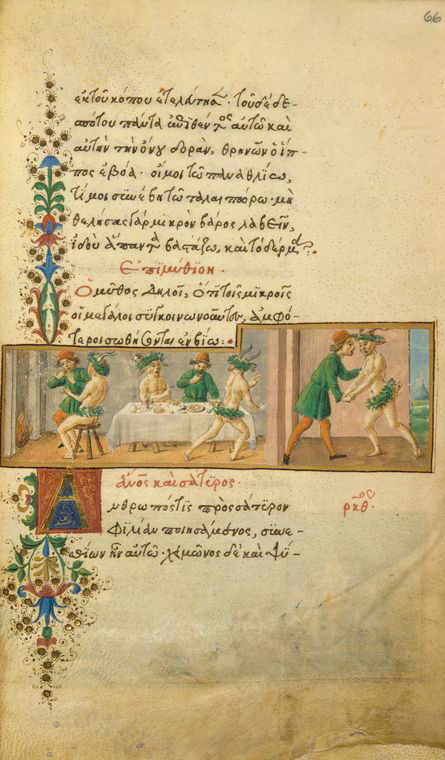 66
ἐκ τοῦ κόπου ἐτελεύτησε. τοῦ δὲ δε-
σπότου πάντα ἐπιθέντος αὐτῷ καὶ
αὐτὴν τὴν ὄνου δοράν, θρηνῶν ὁ ἵπ-
πος ἐβόα· οἴμοι τῷ παναθλίῳ,
τί μοι συνέβη τῷ ταλαιπώρῳ· μὴ
θελήσας γὰρ μικρὸν βάρος λαβεῖν,
ἰδοὺ ἅπαντα βαστάζω, καὶ τὸ δέρμα.
Ἐπιμύθιον.
Ὁ μῦθος δηλοῖ, ὅτι τοῖς μικροῖς
οἱ μεγάλοι συγκοινωνοῦντες, ἀμφό-
τεροι σωθήσονται ἐν βίῳ:
ἄνος καὶ σάτυρος.
Ἄνθρωπός τις πρὸς σάτυρον
φιλίαν ποιησάμενος, συνε-
σθίων ἦν αὐτῷ. χειμῶνος δὲ καὶ ψύ-
ρκθ